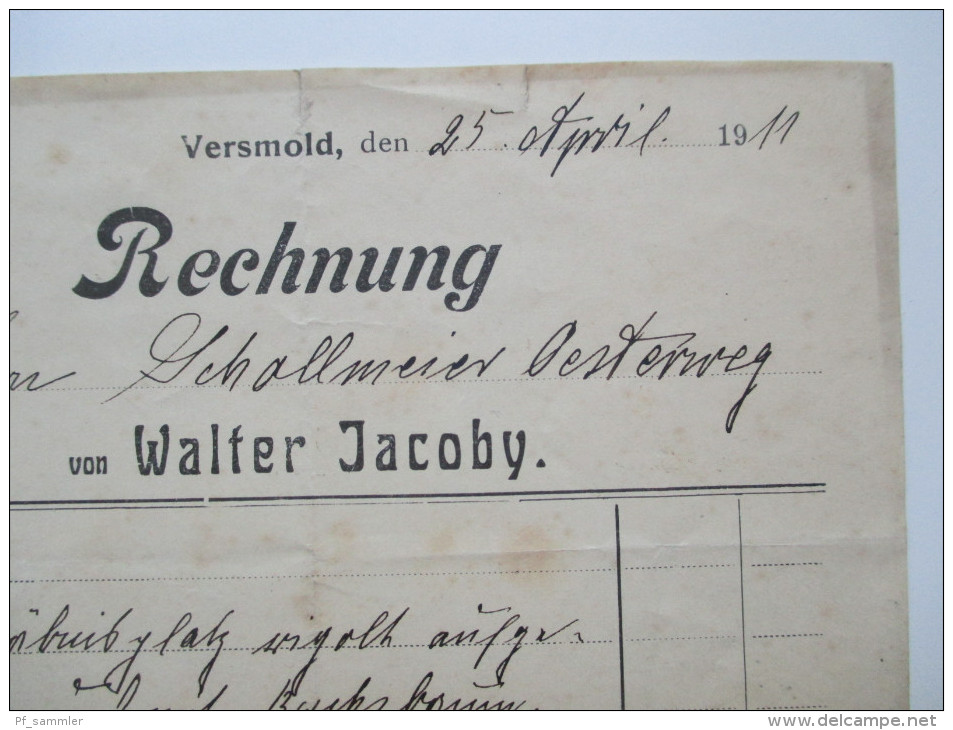 Versmold, den 25. April. 1911
Rechnung
Schollmeier Oesterweg
von Walter Jacoby.
äbnisplatz rigolt aufge-
Buchsbaum
Pf_sammler
www.delcampe.net